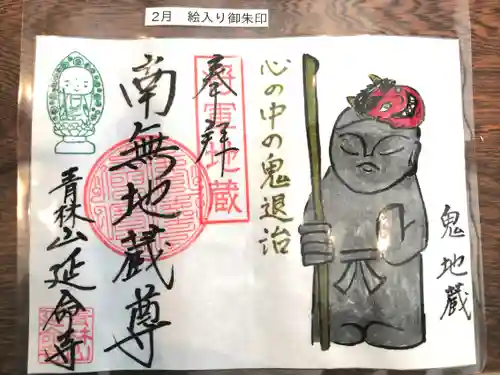 2月 絵入り御朱印
鬼地蔵
心の中の鬼退治
奉拝
将軍地蔵
南無地蔵尊
青林山延命寺